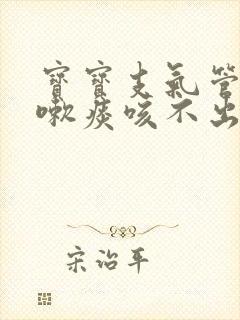 寶寶支氣管
嗽痰咳不出
宋治平